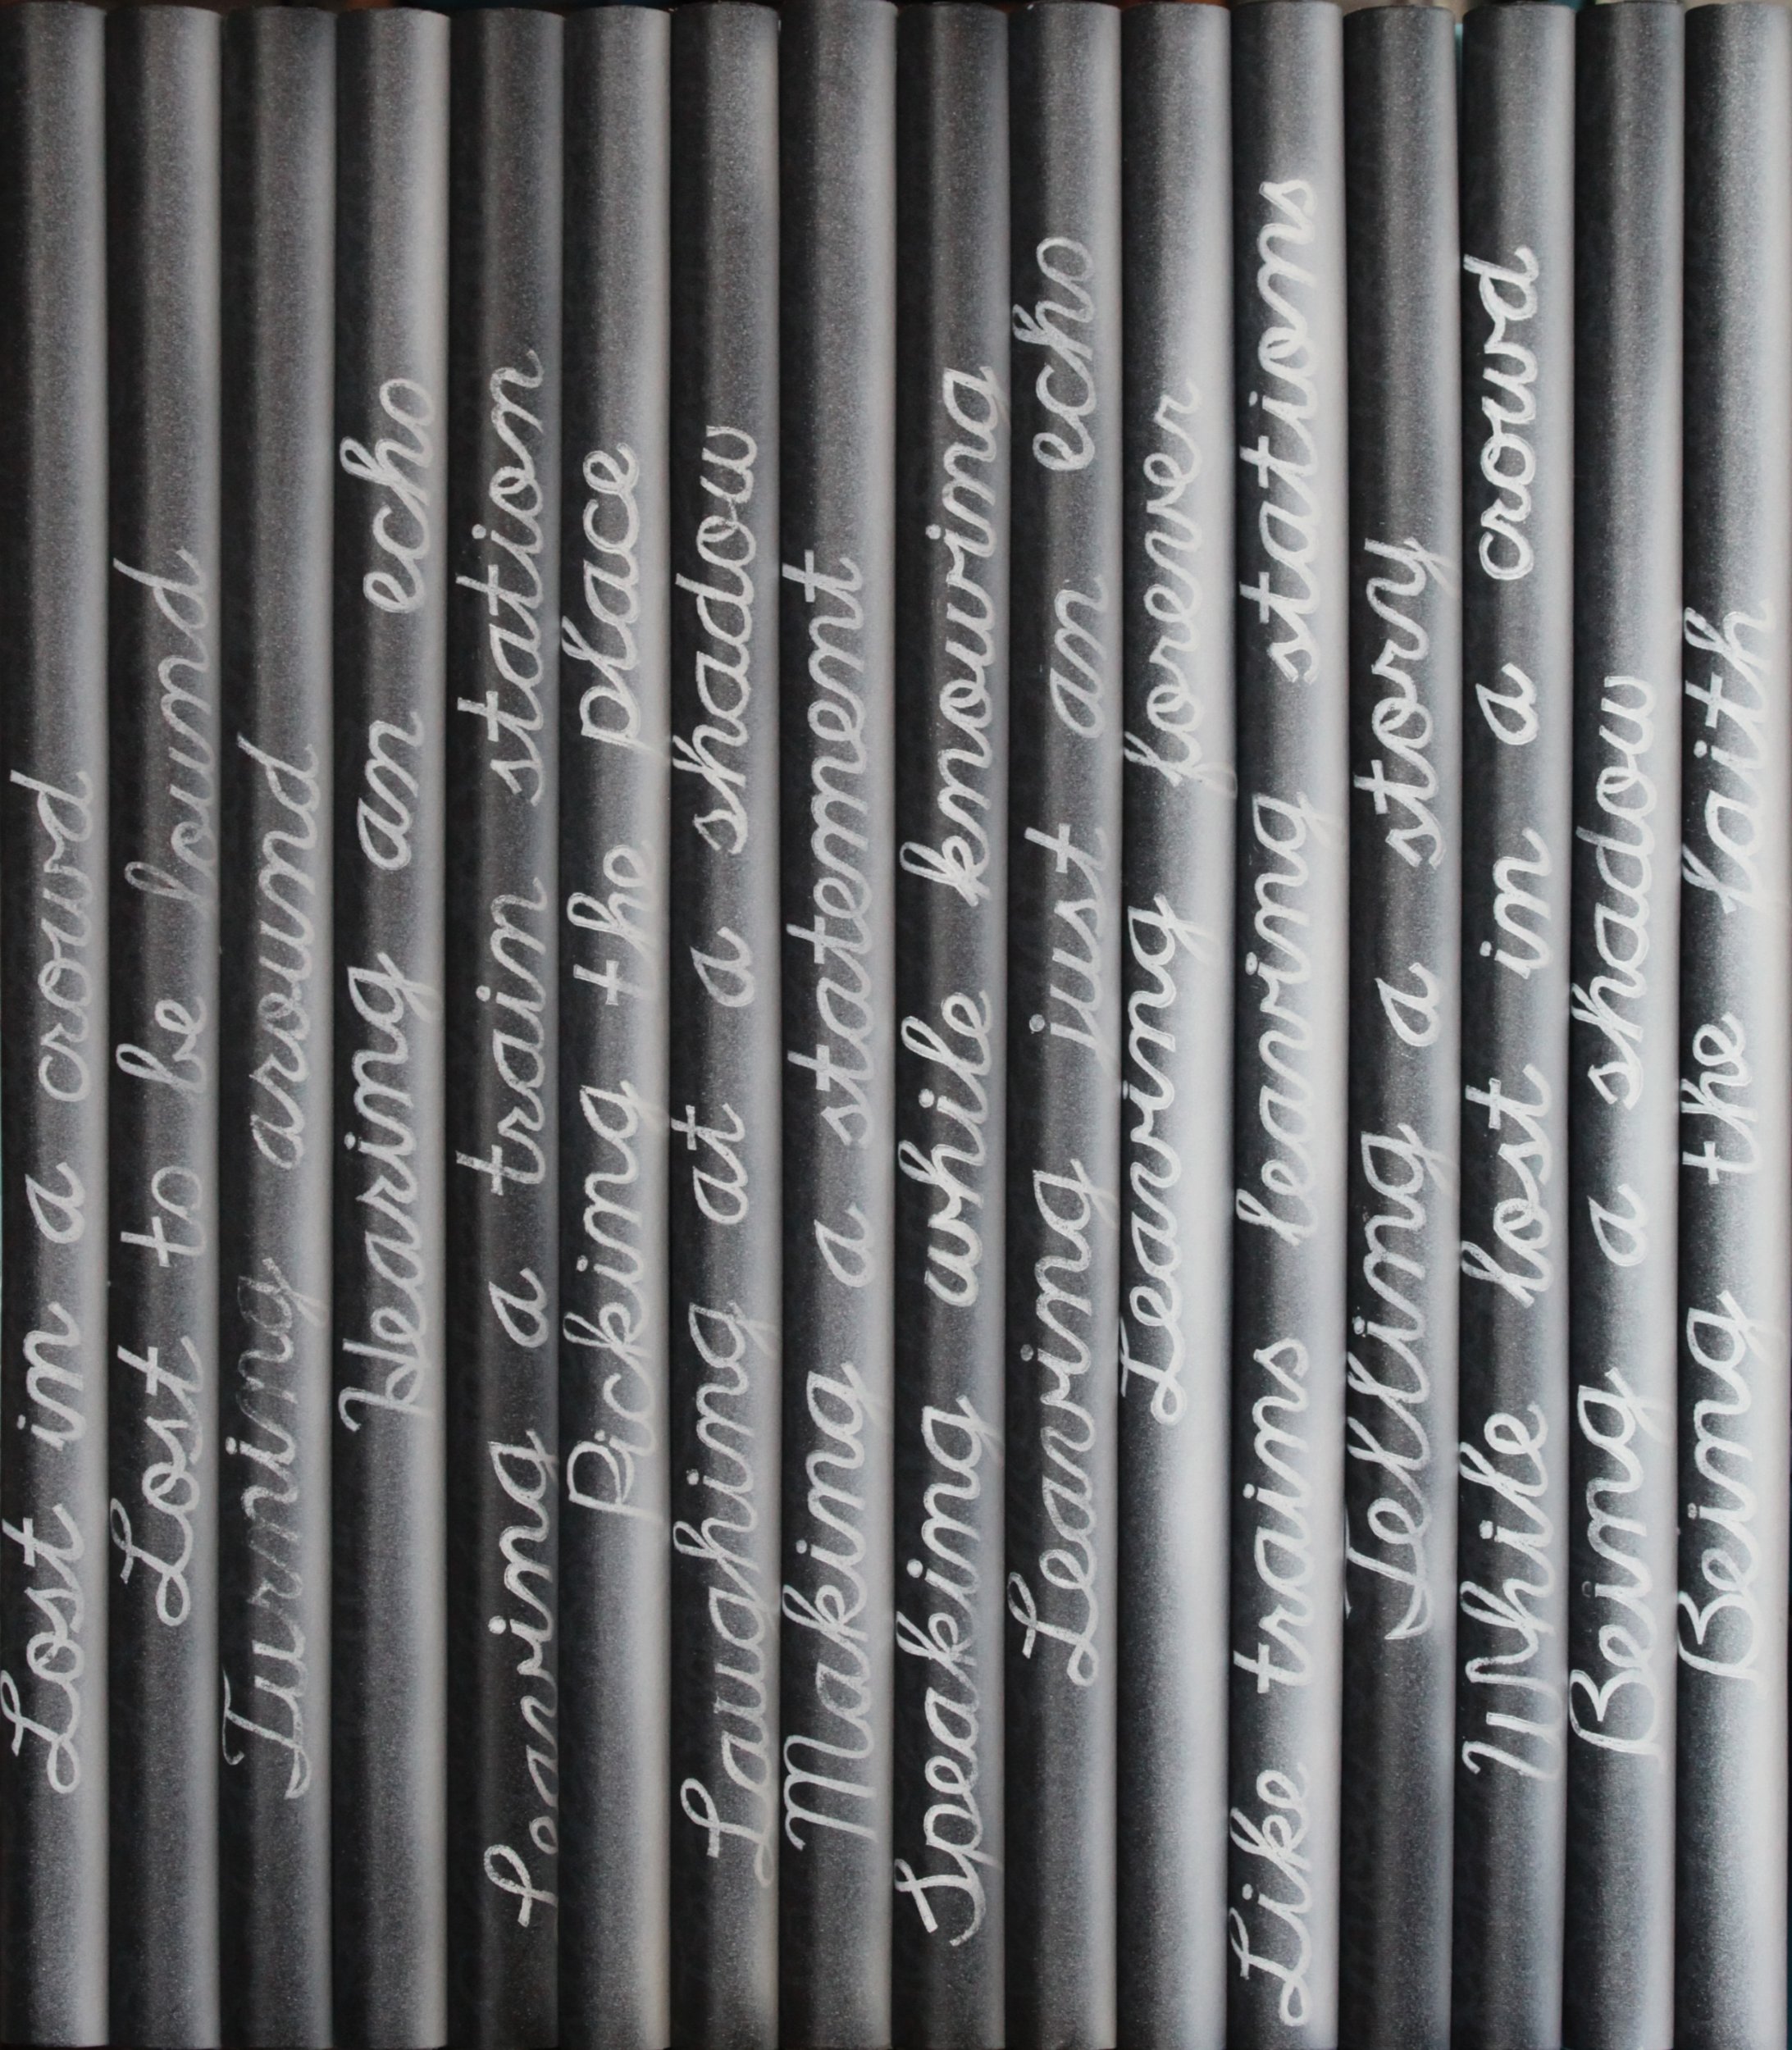 Lost in a crowd
Lost to be found
Turning around
Hearing an echo
Leaving a train station
Picking the place
Laughing at a shadow
Making a statement
Speaking while knowing
Leaving just an echo
Leaving forever
Like trains leaving stations
Telling a story
While lost in a crowd
Being a shadow
Being the faith